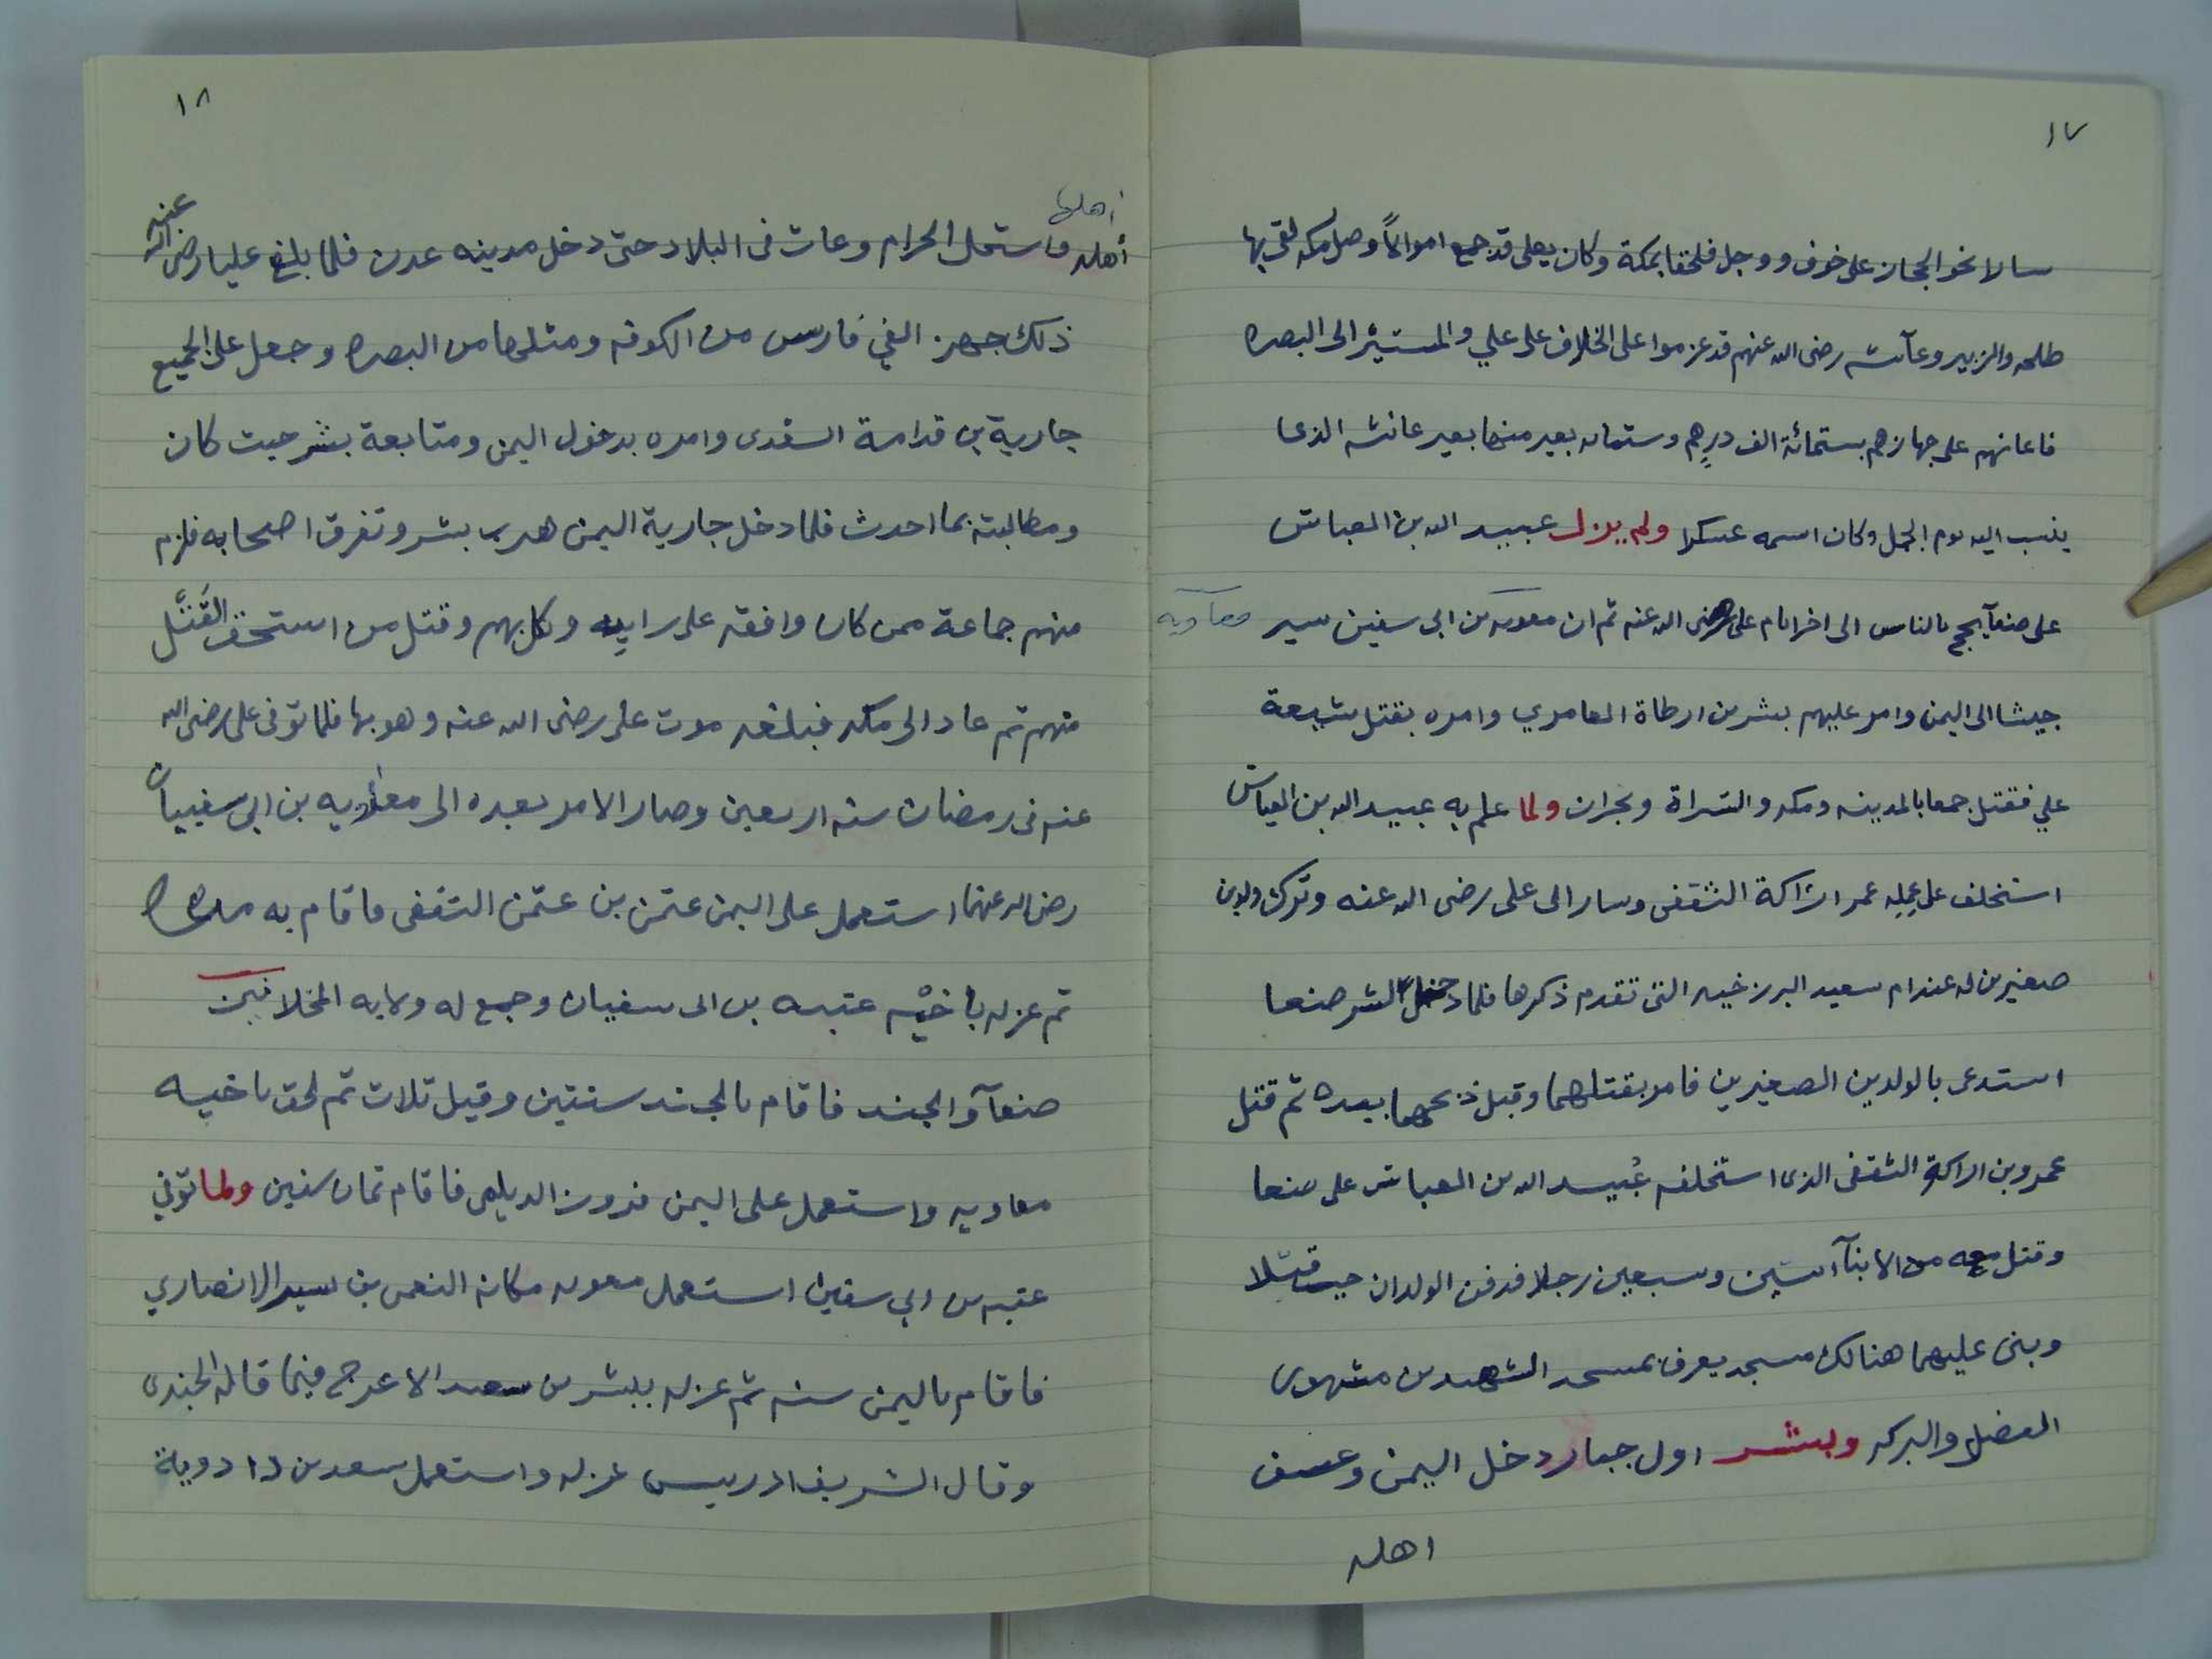 ١٧
سالا نحو الحجاز على خوف ووجل فلحقا بمكة وكان يعلى قد جمع اموالاً وصل مكه لقى بها
طلحه والزبير وعآئشه رضى الله عنهم قد عزموا على الخلاف على علي والمسير الى البصره
فاعانهم على جهازهم بستمائة الف درهم وستمائه بعير منها بعير عائشه الذى
ينسب اليه يوم الجمل وكان اسمه عسكرا ولم يزل عبيد الله بن العباس
على صنعآ يحج بالناس الى اخر ايام على رضى الله عنه ثم ان معويه بن ابى سفين سير معآويه
جيشا الى اليمن وامر عليهم بشر بن ارطاة العامري وامره بقتل شيعة
علي فقتل جمعا بالمدينه ومكه والسراة ونجران ولما علم به عبيد الله بن العباس
استخلف على عمله عمر اراكة الثقفى وسار الى على رضى الله عنه وترك ولدين
صغيرين له عند ام سعيد البرزخيه التى تقدم ذكرها فلما دخل بشر صنعا
استدعى بالولدين الصغيرين فامر بقتلهما وقيل ذبحهما بيده ثم قتل
عمرو بن اراكة الثقفى الذى استخلفه عُبيد الله بن العباس على صنعا
وقتل معه من الابنآ اثنين وسبعين رجلا فدفن الولدان حيث قتلا
وبنى عليهما هنالك مسجد يعرف بمسجد الشهيدين مشهور
الفضل والبركه وبشر اول جبار دخل اليمن وعسف
اهله
١٨
اهلها
أهله فاستحل الحرام وعاث فى البلاد حتى دخل مدينه عدن فلما بلغ عليا رضى الله عنه
ذلك جهز الفي فارس من الكوفه ومثلها من البصره وجعل على الجميع
جارية بن قدامة السعدى وامره بدخول اليمن ومتابعة بشر حيث كان
ومطالبته بما احدث فلما دخل جارية اليمن هرب بشر وتفرق اصحابه فلزم
منهم جماعة ممن كان وافقه على رايه وكلبهم وقتل من استحق القتل
منهم ثم عاد الى مكه فبلغه موت على رضى الله عنه وهو بها فلما توفى على رضى الله
عنه فى رمضان سنه اربعين وصار الامر بعده الى معاويه بن ابى سفييان
رضى الله عنهما استعمل على اليمن عثمن بن عثمن الثقفى فاقام به مده
ثم عزله باخيه عتبه بن ابى سفيان وجمع له ولايه المخلافين
صنعآ والجند فاقام بالجند سنتين وقيل ثلاث ثم لحق باخيه
معاويه واستعمل على اليمن فيروز الديلمى فاقام ثمان سنين ولما توفي
عتبه بن ابي سفين استعمل معويه مكانه النعمن بن بشير الانصاري
فاقام باليمن سنه ثم عزله ببشر بن سعيد الاعرج فيما قاله الجندى
وقال الشريف ادريس عزله واستعمل سعد بن دادوية